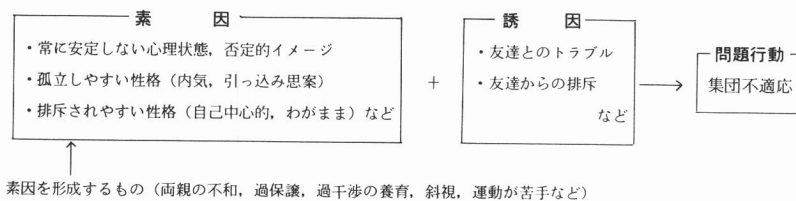 素因
・常に安定しない心理状態，否定的イメージ
・孤立しやすい性格（内気，引っ込み思案）
・排斥されやすい性格（自己中心的，わがまま）など
＋
誘因
・友達とのトラブル
・友達からの排斥
など
問題行動
集団不適応
素因を形成するもの（両親の不和，過保護，過干渉の養育，斜視，運動が苦手など）